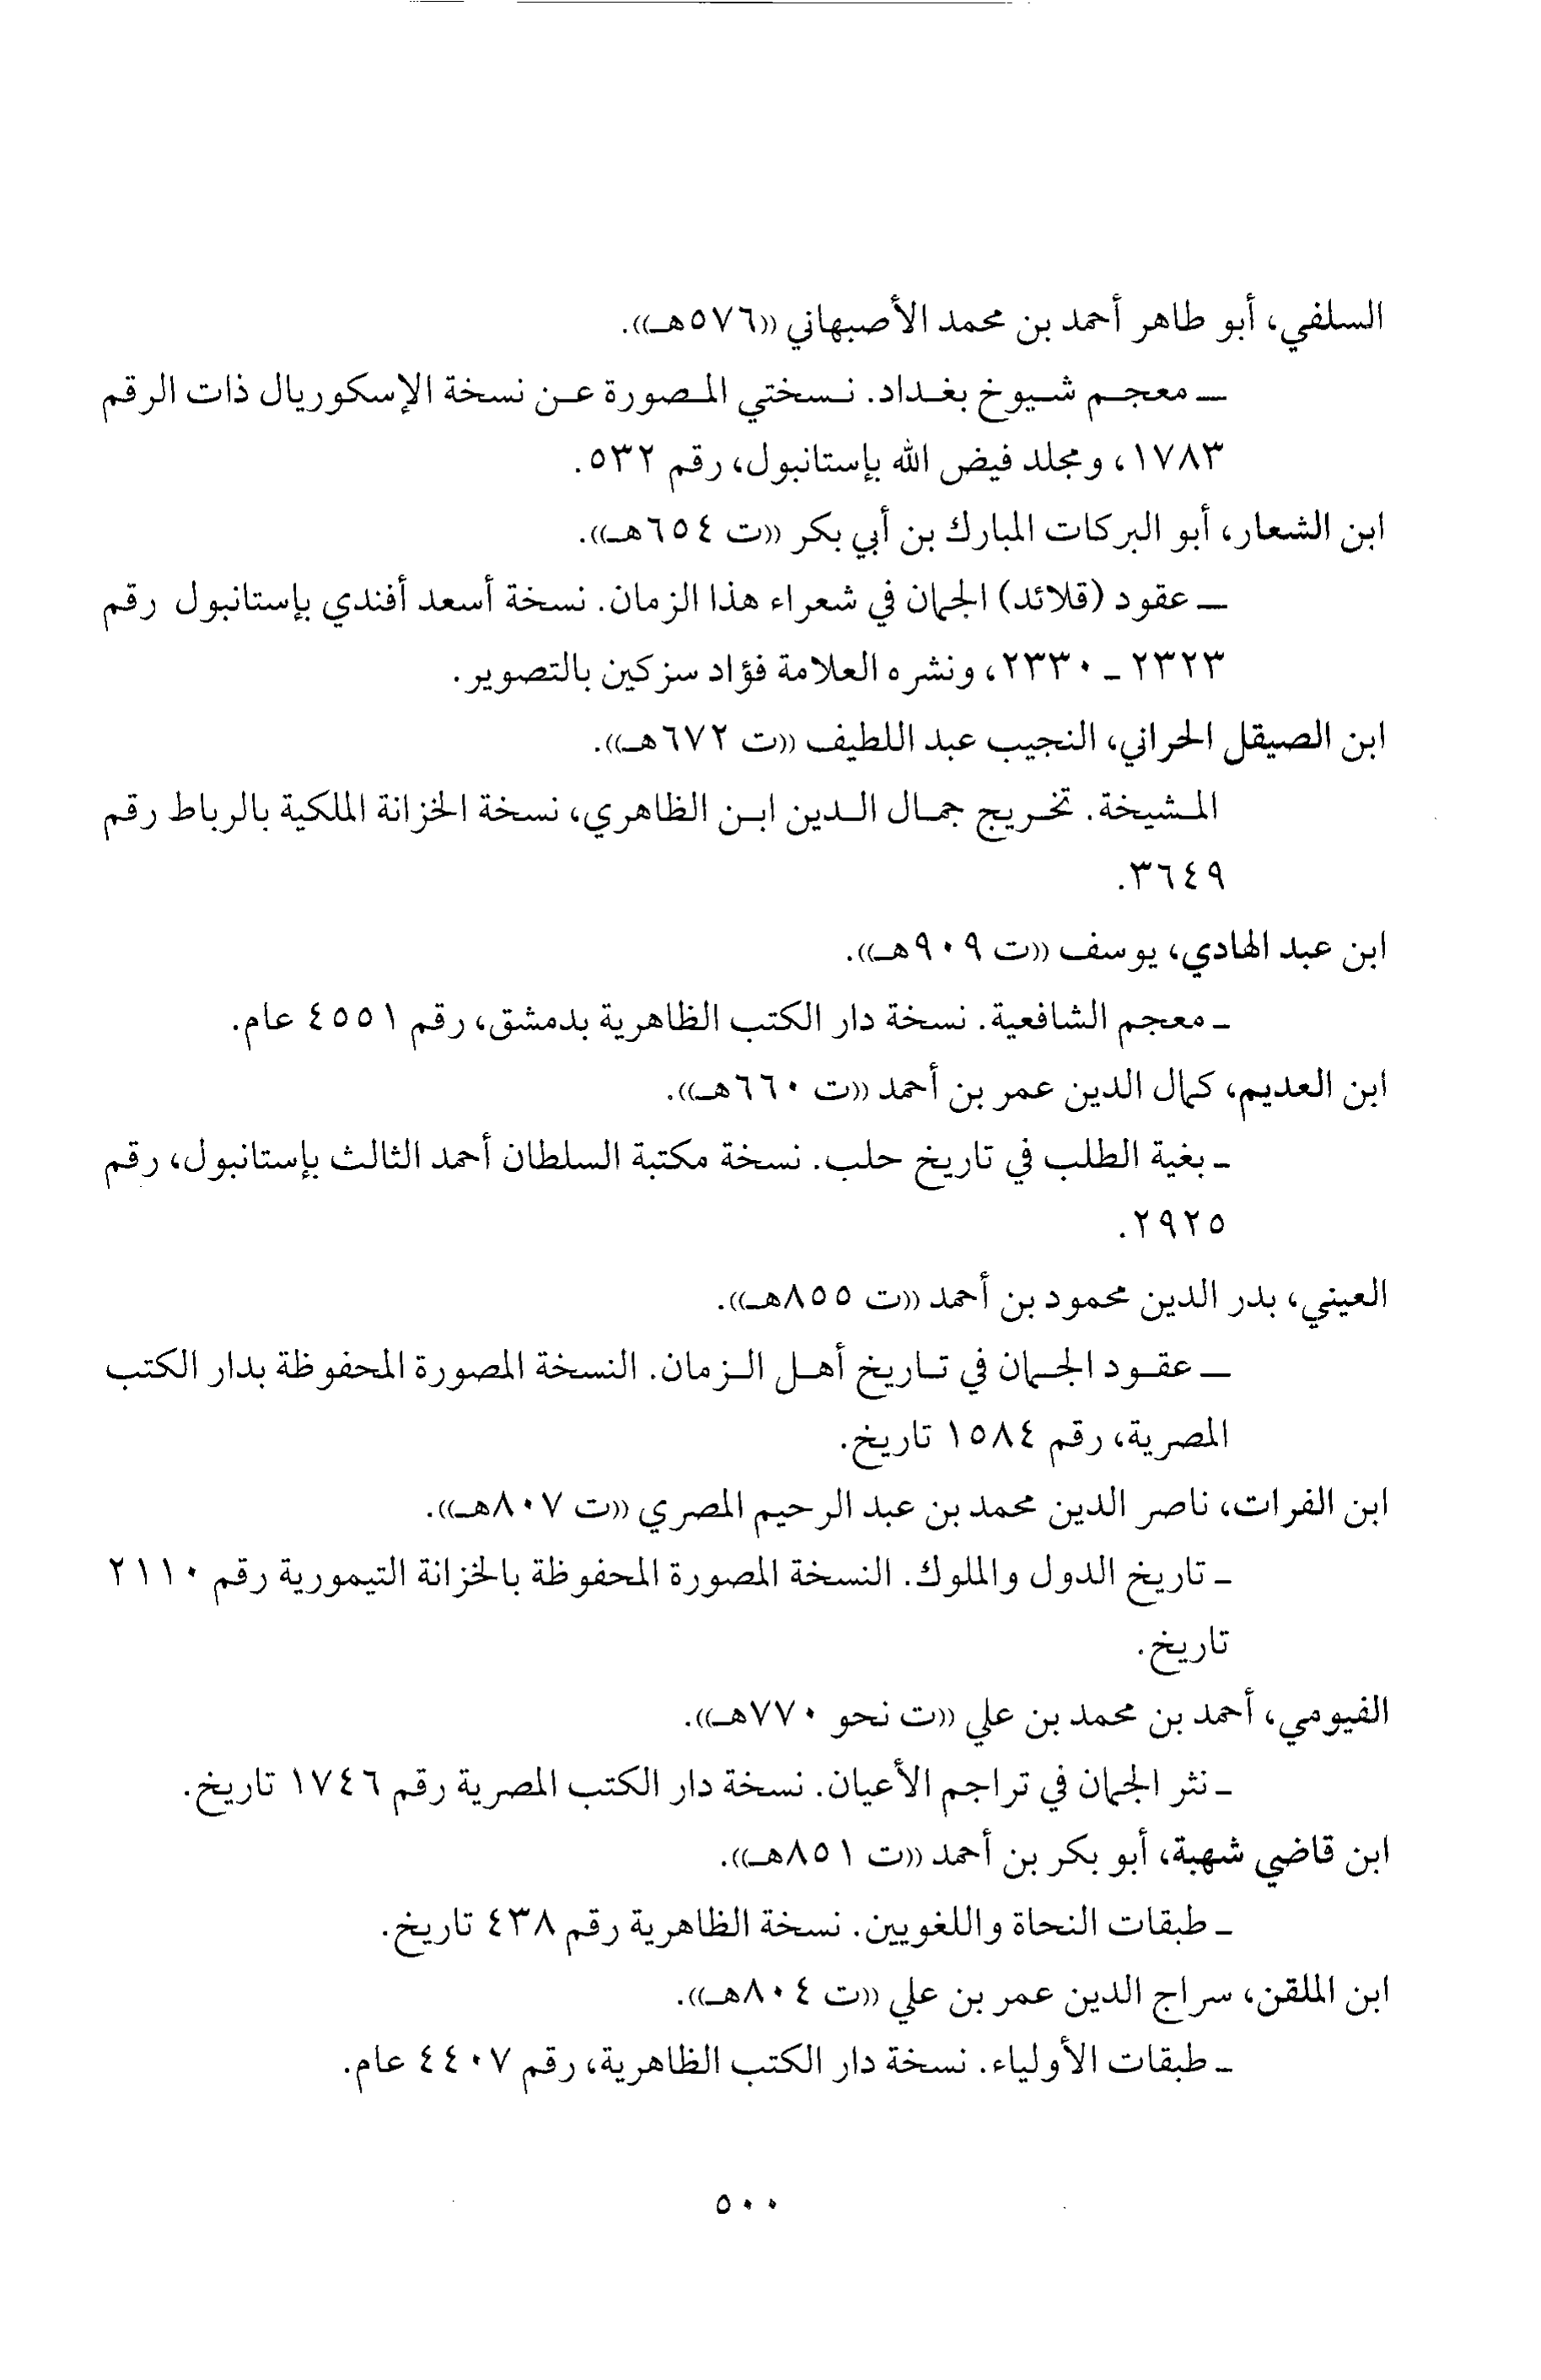 السلفي، أبو طاهر أحمد بن محمد الأصبهاني «٥٧٦هـ».
ــ معجم شيوخ بغداد. نسختي المصورة عن نسخة الإسكوريال ذات الرقم
١٧٨٣، ومجلد فيض الله بإستانبول، رقم ٥٣٢.
ابن الشعار، أبو البركات المبارك بن أبي بكر «ت ٦٥٤هـ».
ــ عقود (قلائد) الجمان في شعراء هذا الزمان. نسخة أسعد أفندي بإستانبول رقم
٢٣٢٣ ـ ٢٣٣٠، ونشره العلامة فؤاد سزكين بالتصوير.
ابن الصيقل الحراني، النجيب عبد اللطيف «ت ٦٧٢هـ».
المشيخة. تخريج جمال الدين ابن الظاهري، نسخة الخزانة الملكية بالرباط رقم
٣٦٤٩.
ابن عبد الهادي، يوسف «ت ٩٠٩هـ».
ـ معجم الشافعية. نسخة دار الكتب الظاهرية بدمشق، رقم ٤٥٥١ عام.
ابن العديم، كمال الدين عمر بن أحمد «ت ٦٦٠هـ».
ـ بغية الطلب في تاريخ حلب. نسخة مكتبة السلطان أحمد الثالث بإستانبول، رقم
٢٩٢٥.
العيني، بدر الدين محمود بن أحمد «ت ٨٥٥هـ».
ــ عقود الجمان في تاريخ أهل الزمان. النسخة المصورة المحفوظة بدار الكتب
المصرية، رقم ١٥٨٤ تاريخ.
ابن الفرات، ناصر الدين محمد بن عبد الرحيم المصري «ت ٨٠٧هـ».
ـ تاريخ الدول والملوك. النسخة المصورة المحفوظة بالخزانة التيمورية رقم ٢١١٠
تاريخ.
الفيومي، أحمد بن محمد بن علي «ت نحو ٧٧٠هـ».
ـ نثر الجمان في تراجم الأعيان. نسخة دار الكتب المصرية رقم ١٧٤٦ تاريخ.
ابن قاضي شهبة، أبو بكر بن أحمد «ت ٨٥١هـ».
ـ طبقات النحاة واللغويين. نسخة الظاهرية رقم ٤٣٨ تاريخ.
ابن الملقن، سراج الدين عمر بن علي «ت ٨٠٤هـ».
ـ طبقات الأولياء. نسخة دار الكتب الظاهرية، رقم ٤٤٠٧ عام.
٥٠٠